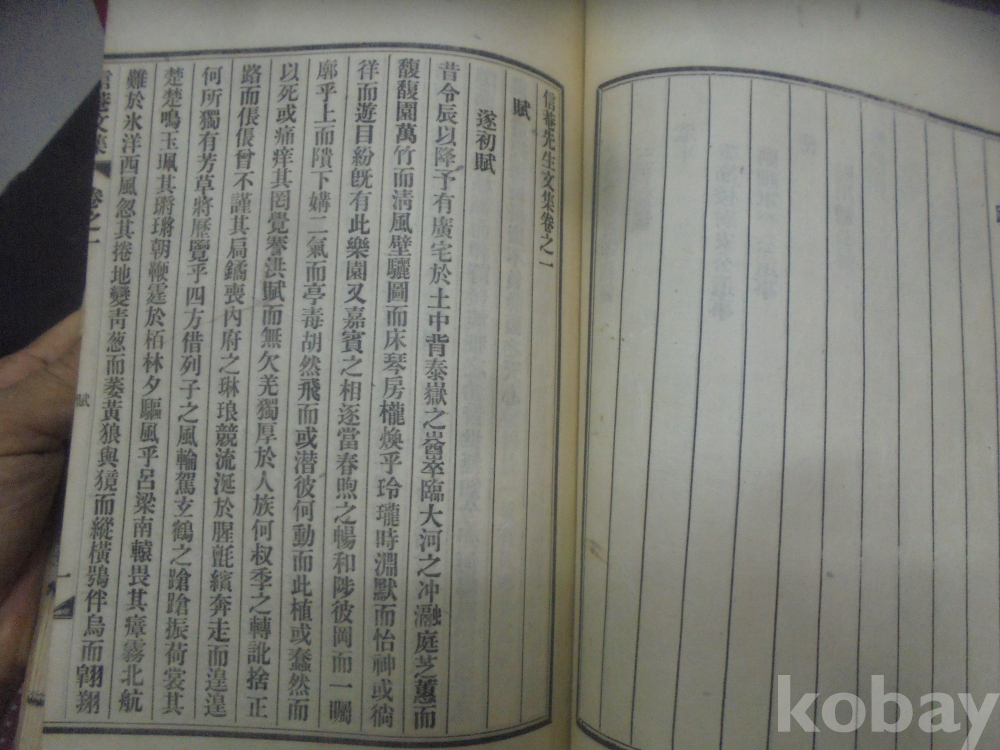 信菴先生文集卷之一
賦
遂初賦
昔令辰以降予有廣宅於土中背泰嶽之崷崒臨大河之冲瀜庭芝蕙而
馥馥園萬竹而淸風壁驪圖而床琴房櫳煥乎玲瓏時淵默而怡神或徜
徉而遊目紛旣有此樂園又嘉賓之相逐當春煦之暢和陟彼岡而一矚
廓乎上而隤下媾二氣而亭毒胡然飛而或潜彼何動而此植或蠢然而
以死或痛痒其罔覺奪洪賦而無欠羌獨厚於人族何叔季之轉訛捨正
路而倀倀曾不謹其扃鐍喪內府之琳琅競流涎於腥氈繽奔走而遑遑
何所獨有芳草將歷覽乎四方借列子之風輪駕玄鶴之蹌蹌振荷裳其
楚楚鳴玉珮其瑲瑲朝鞭霆於栢林夕驅風乎呂梁南轅畏其瘴霧北航
難於氷洋西風忽其捲地變靑葱而萎黃狼與獍而縱橫鴞伴烏而翺翔
信菴文集
卷之一
賦
一
kobay